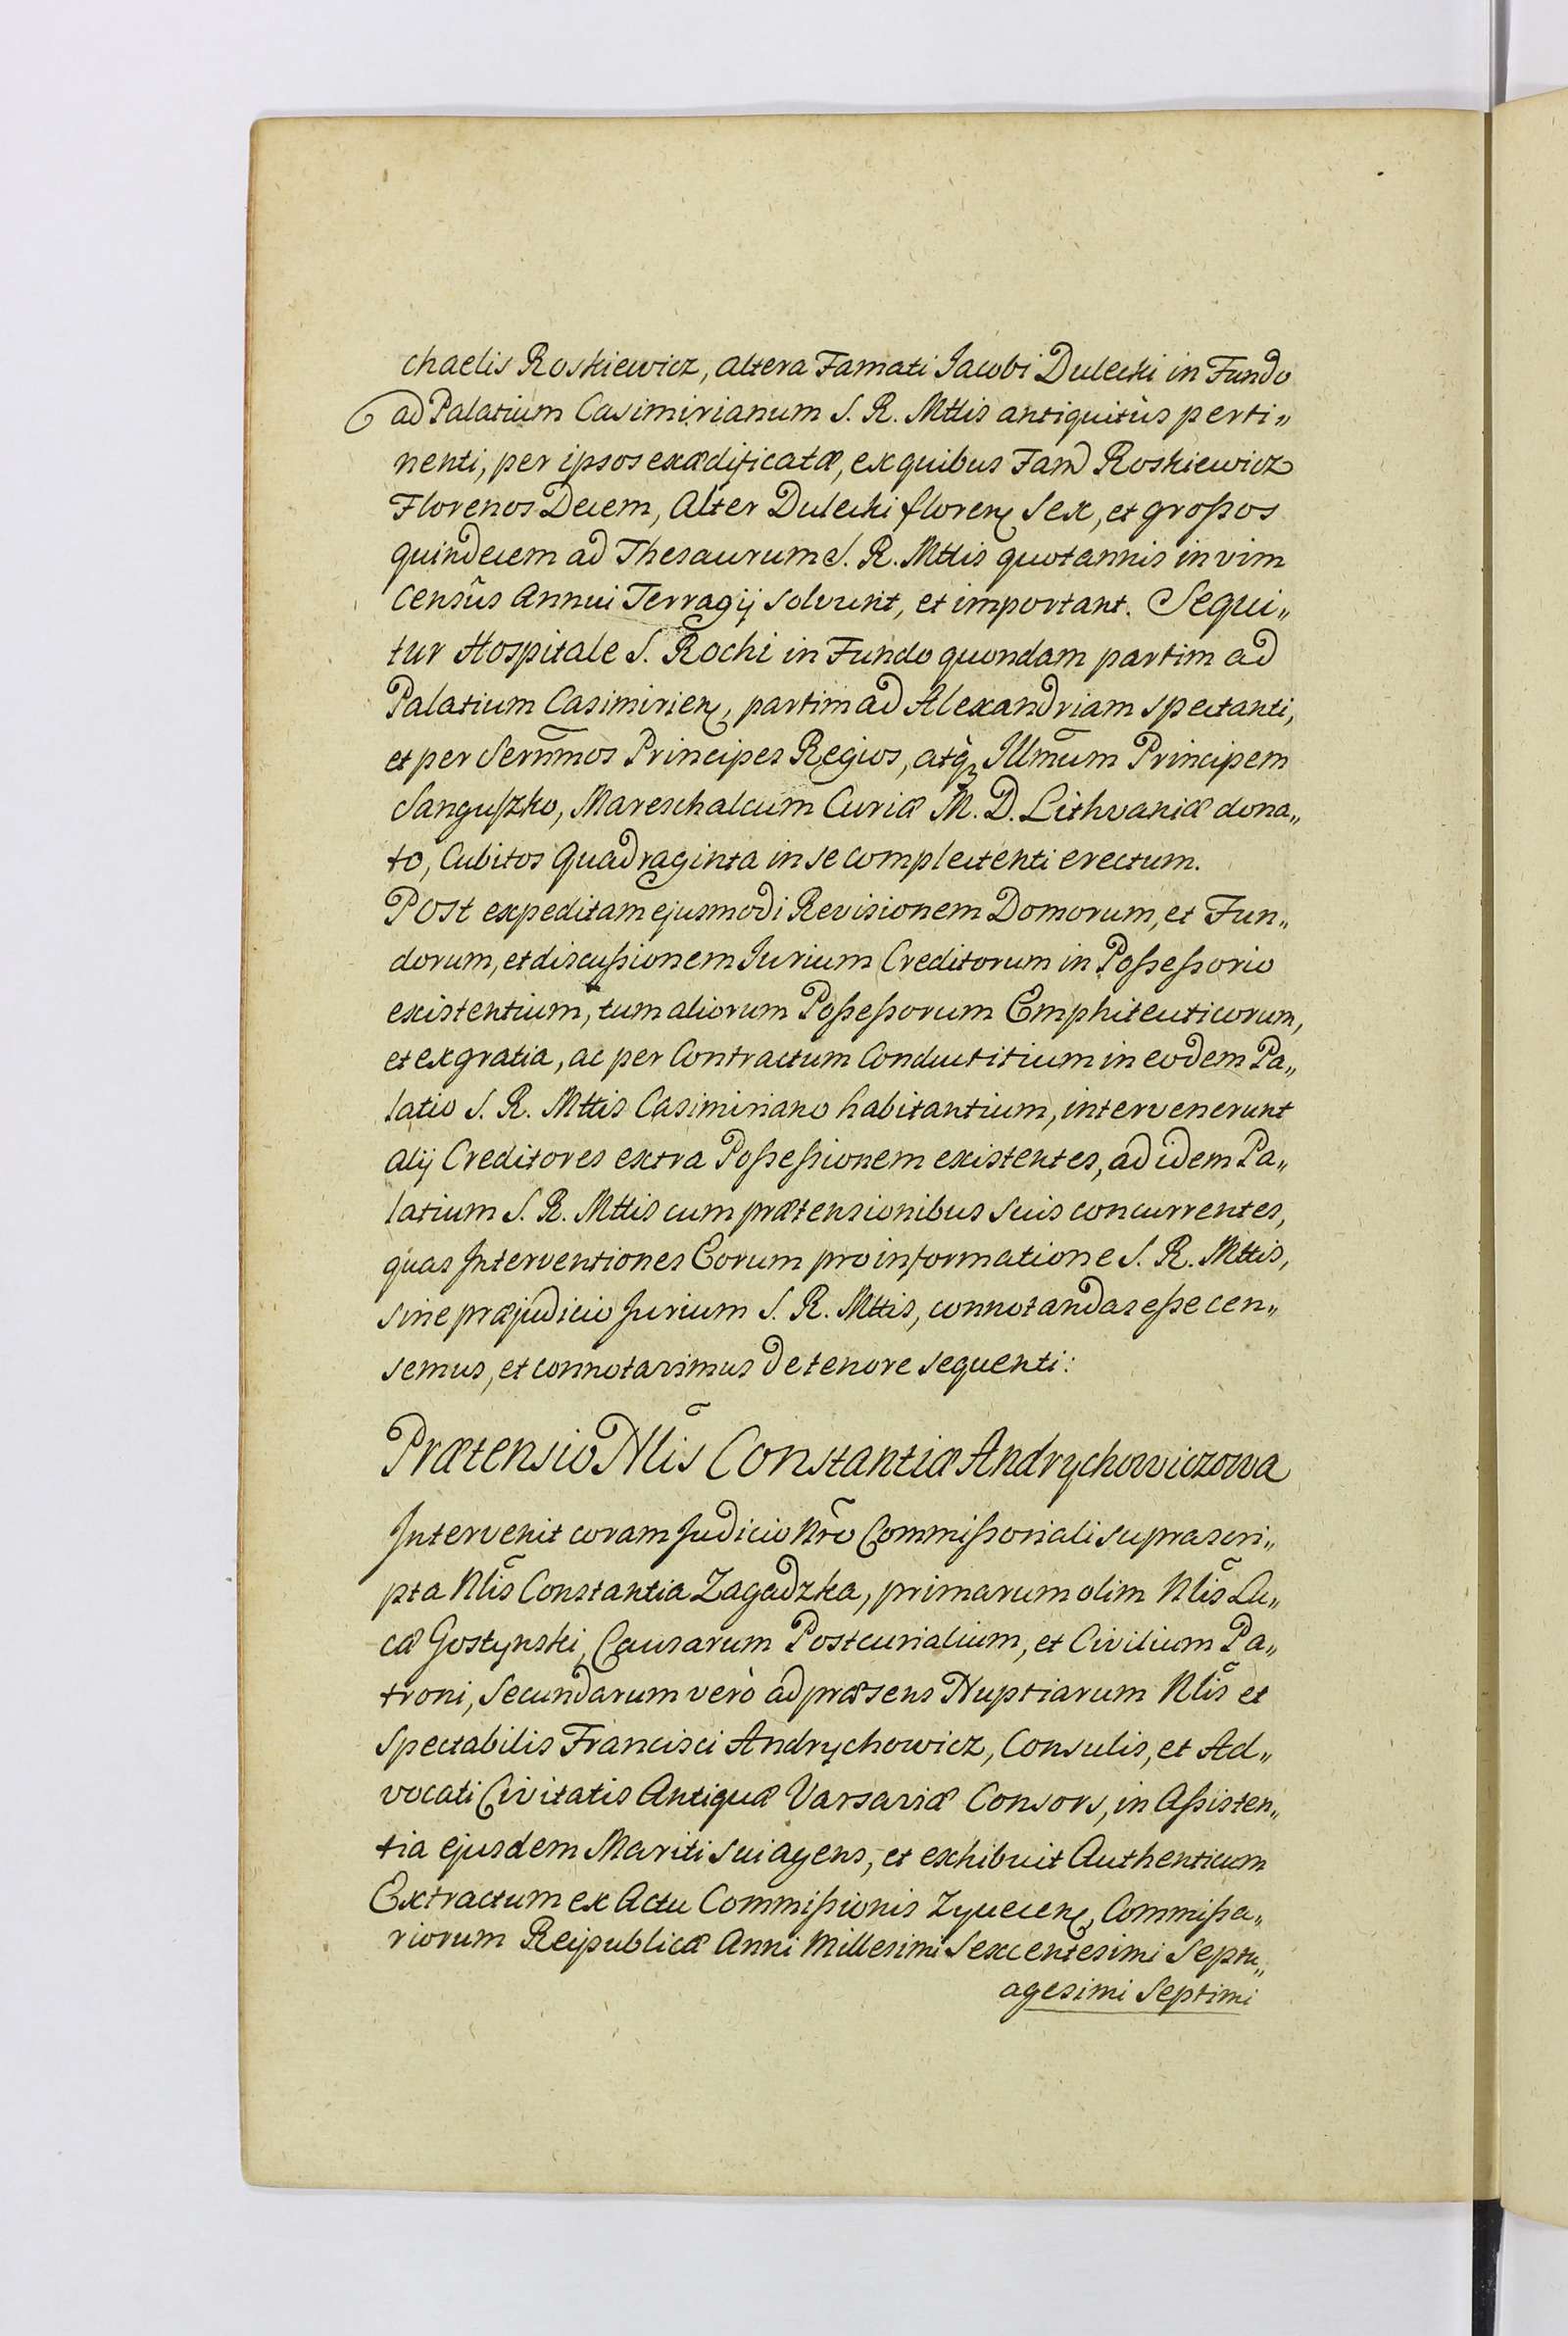 chaelis Roskiewicz, altera Famati Jacobi Dulecki in Fundo
ad Palatium Casimirianum S. R. Mttis antiquitùs perti„
nenti, per ipsos exædificatæ, ex quibus Fam Roskiewicz
Florenos Decem, Alter Dulecki floren Sex, et großos
quindecem ad Thesaurum S. R. Mttis quotannis in vim
Censûs Annui Terragij solvunt, et important. Sequi„
tur Hospitale S. Rochi in Fundo quondam partim ad
Palatium Casimirien, partim ad Alexandriam spectanti,
et per Serm̃mos Principes Regios, atq̀ Illm̃um Principem
Sangußko, Mareschalcum Curiæ M. D. Lithvaniæ dona„
to, Cubitos Quadraginta in se complectenti erectum.
Post expeditam ejusmodi Revisionem Domorum, et Fun„
dorum, et discußionem Jurium Creditorum in Poßeßorio
existentium, tum aliorum Poßeßorum Emphiteuticorum,
et ex gratia, ac per Contractum Conductitium in eodem Pa„
latio S. R. Mttis Casimiriano habitantium, intervenerunt
alij Creditores extra Poßeßionem existentes, ad idem Pa„
latium S. R. Mttis cum prætensionibus suis concurrentes,
quas Interventiones Eorum pro informatione S. R. Mttis,
sine præjudicio Jurium S. R. Mttis, connotandas eße cen„
semus, et connotavimus de tenore sequenti:
Prætensio Nlis̃ Constantiæ Andrychowiczowa
Intervenit coram Judicio Nrõ Commißoriali suprascri„
pta Nlis̃ Constantia Zagadzka, primarum olim Nlis̃ Lu„
cæ Gostynski, Causarum Postcurialium, et Civilium Pa„
troni, Secundarum verò ad præsens Nuptiarum Nlis̃ et
Spectabilis Francisci Andrychowicz, Consulis, et Ad„
vocati Civitatis Antiquæ Varsaviæ Consors, in Aßisten„
tia ejusdem Mariti sui agens, et exhibuit Authenticum
Extractum ex Actu Commißionis Zyvecen, Commißa„
riorum Reipublicæ Anni Millesimi Sexcentesimi Septu„
agesimi Septimi